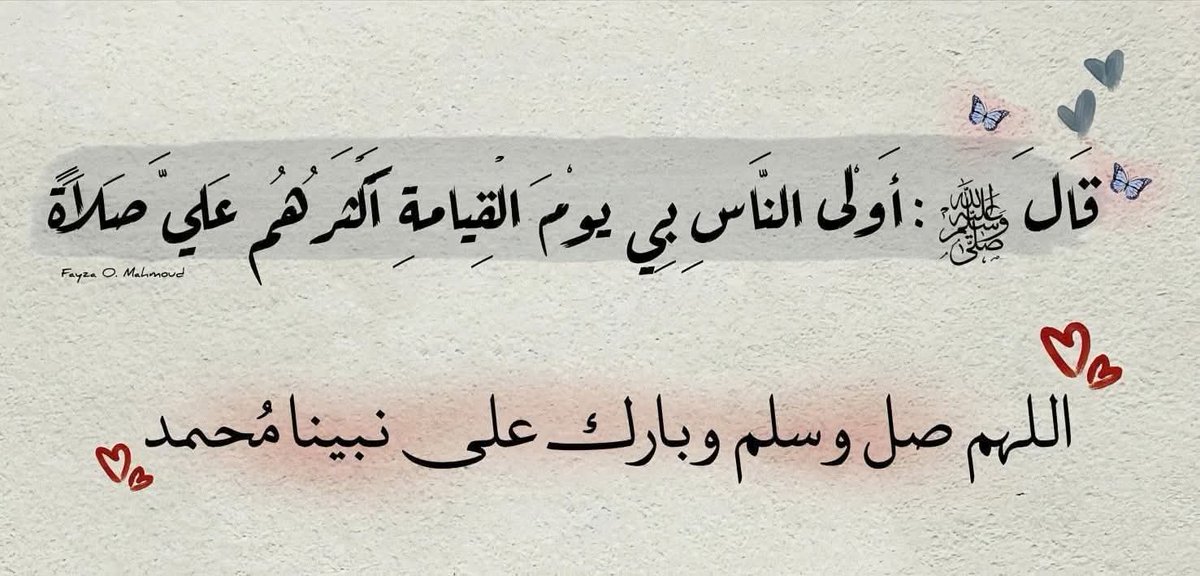 قَالَ ﷺ : أَوْلى النَّاسِ بِي يوْمَ الْقِيامةِ أَكْثَرُهُم عَليَّ صَلاَةً
Fayza O. Mahmoud
اللهم صل وسلم وبارك على نبينا مُحمد